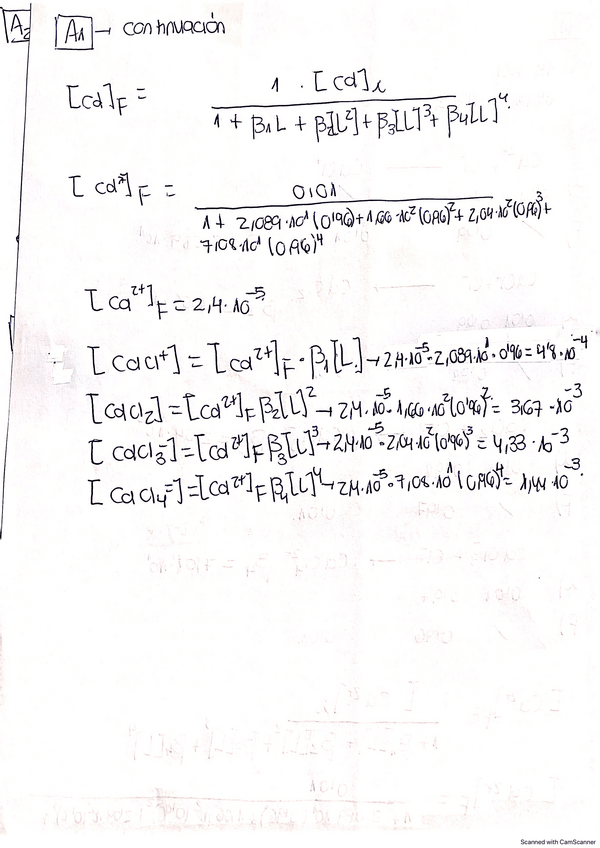 A2
A1 → continuación
[Cd]F = 1 · [Cd]i
1 + β1L + β2[L²] + β3[L]³ + β4[L]⁴
[Cd²⁺]F = 0'01
1 + 2,089·10¹(0'96) + 1,66·10²(0,96)² + 2,04·10²(0,96)³ +
7,08·10¹(0,96)⁴
[Cd²⁺]F = 2,4·10⁻⁵
[CdCl⁺] = [Cd²⁺]F · β1[L] → 2,4·10⁻⁵·2,089·10¹·0'96 = 4'8·10⁻⁴
[CdCl2] = [Cd²⁺]F β2[L]² → 2,4·10⁻⁵·1,66·10²(0'96)² = 3,67·10⁻³
[CdCl3⁻] = [Cd²⁺]F β3[L]³ → 2,4·10⁻⁵·2,04·10²(0'96)³ = 4,33·10⁻³
[CdCl4⁼] = [Cd²⁺]F β4[L]⁴ → 2,4·10⁻⁵·7,08·10¹(0,96)⁴ = 1,44·10⁻³
Scanned with CamScanner